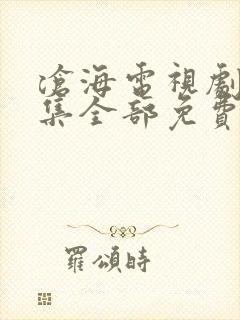 滄海電視劇
集全部免費
羅頌時